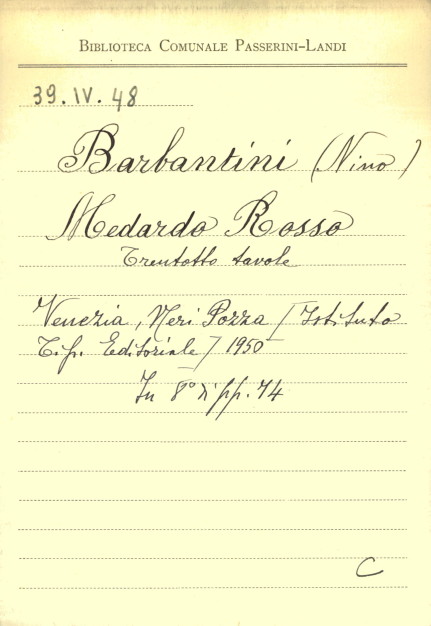 BIBLIOTECA COMUNALE PASSERINI-LANDI
39.IV.48
Barbantini (Nino)
Medardo Rosso
Trentotto tavole
Venezia, Neri Pozza [Istituto
Tip. Editoriale] 1950
In 8° di pp. 74
C